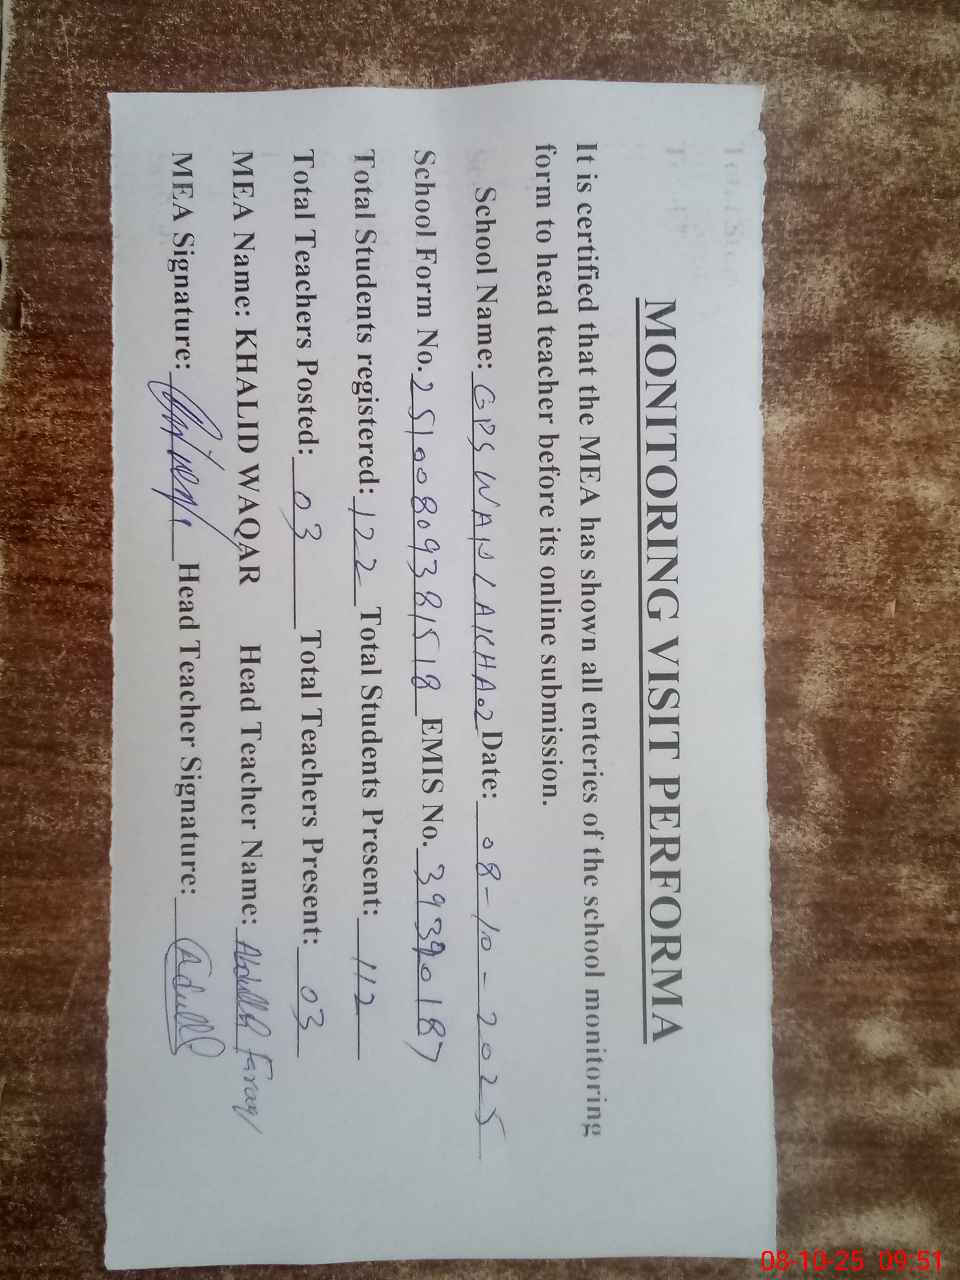 MONITORING VISIT PERFORMA
It is certified that the MEA has shown all enteries of the school monitoring
form to head teacher before its online submission.
School Name: GPS WANLAKHA02 Date: 08-10-2025
School Form No. 25100809381518 EMIS No. 39390187
Total Students registered: 122 Total Students Present: 112
Total Teachers Posted: 03 Total Teachers Present: 03
MEA Name: KHALID WAQAR Head Teacher Name: Abdullah Farooq
MEA Signature: Head Teacher Signature:
08-10-25 09:51